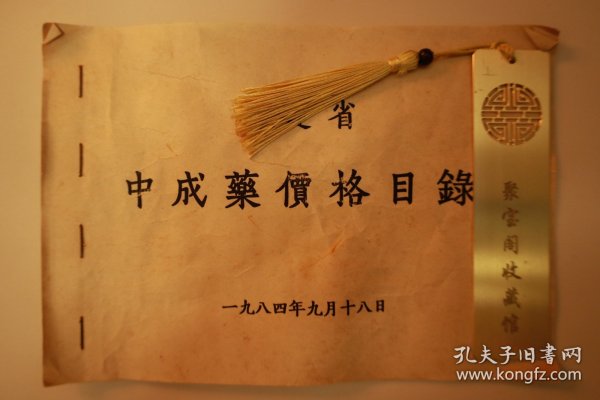 省
中成藥價格目錄
一九八四年九月十八日
聚宝阁收藏馆
孔夫子旧書网
www.kongfz.com